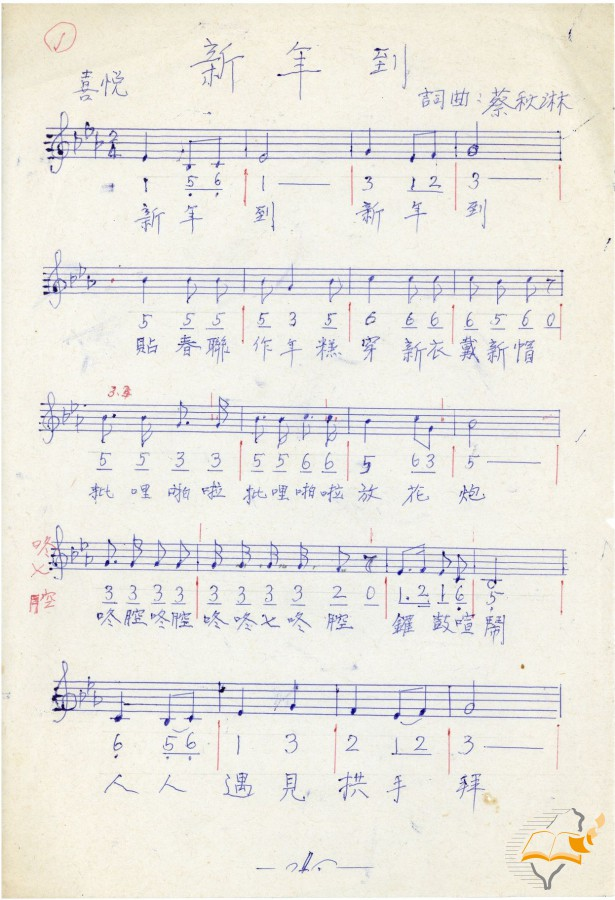 1
新年到
喜悅
詞曲:蔡秋淋
2/4
1 5 6 1 — 3 1 2 3 —
新年 到 新年 到
5 5 5 5 3 5 6 6 6 6 5 6 0
貼春聯 作年糕 穿新衣戴新帽
3.3
5 5 3 3 5 5 6 6 5 6 3 5 —
批哩啪啦 批哩啪啦 放花炮
咚七腔
3 3 3 3 3 3 3 3 2 0 1. 2 1 6 5
咚腔咚腔 咚咚七咚腔 鑼鼓喧鬧
6 5 6 1 3 2 1 2 3 —
人人遇見拱手拜